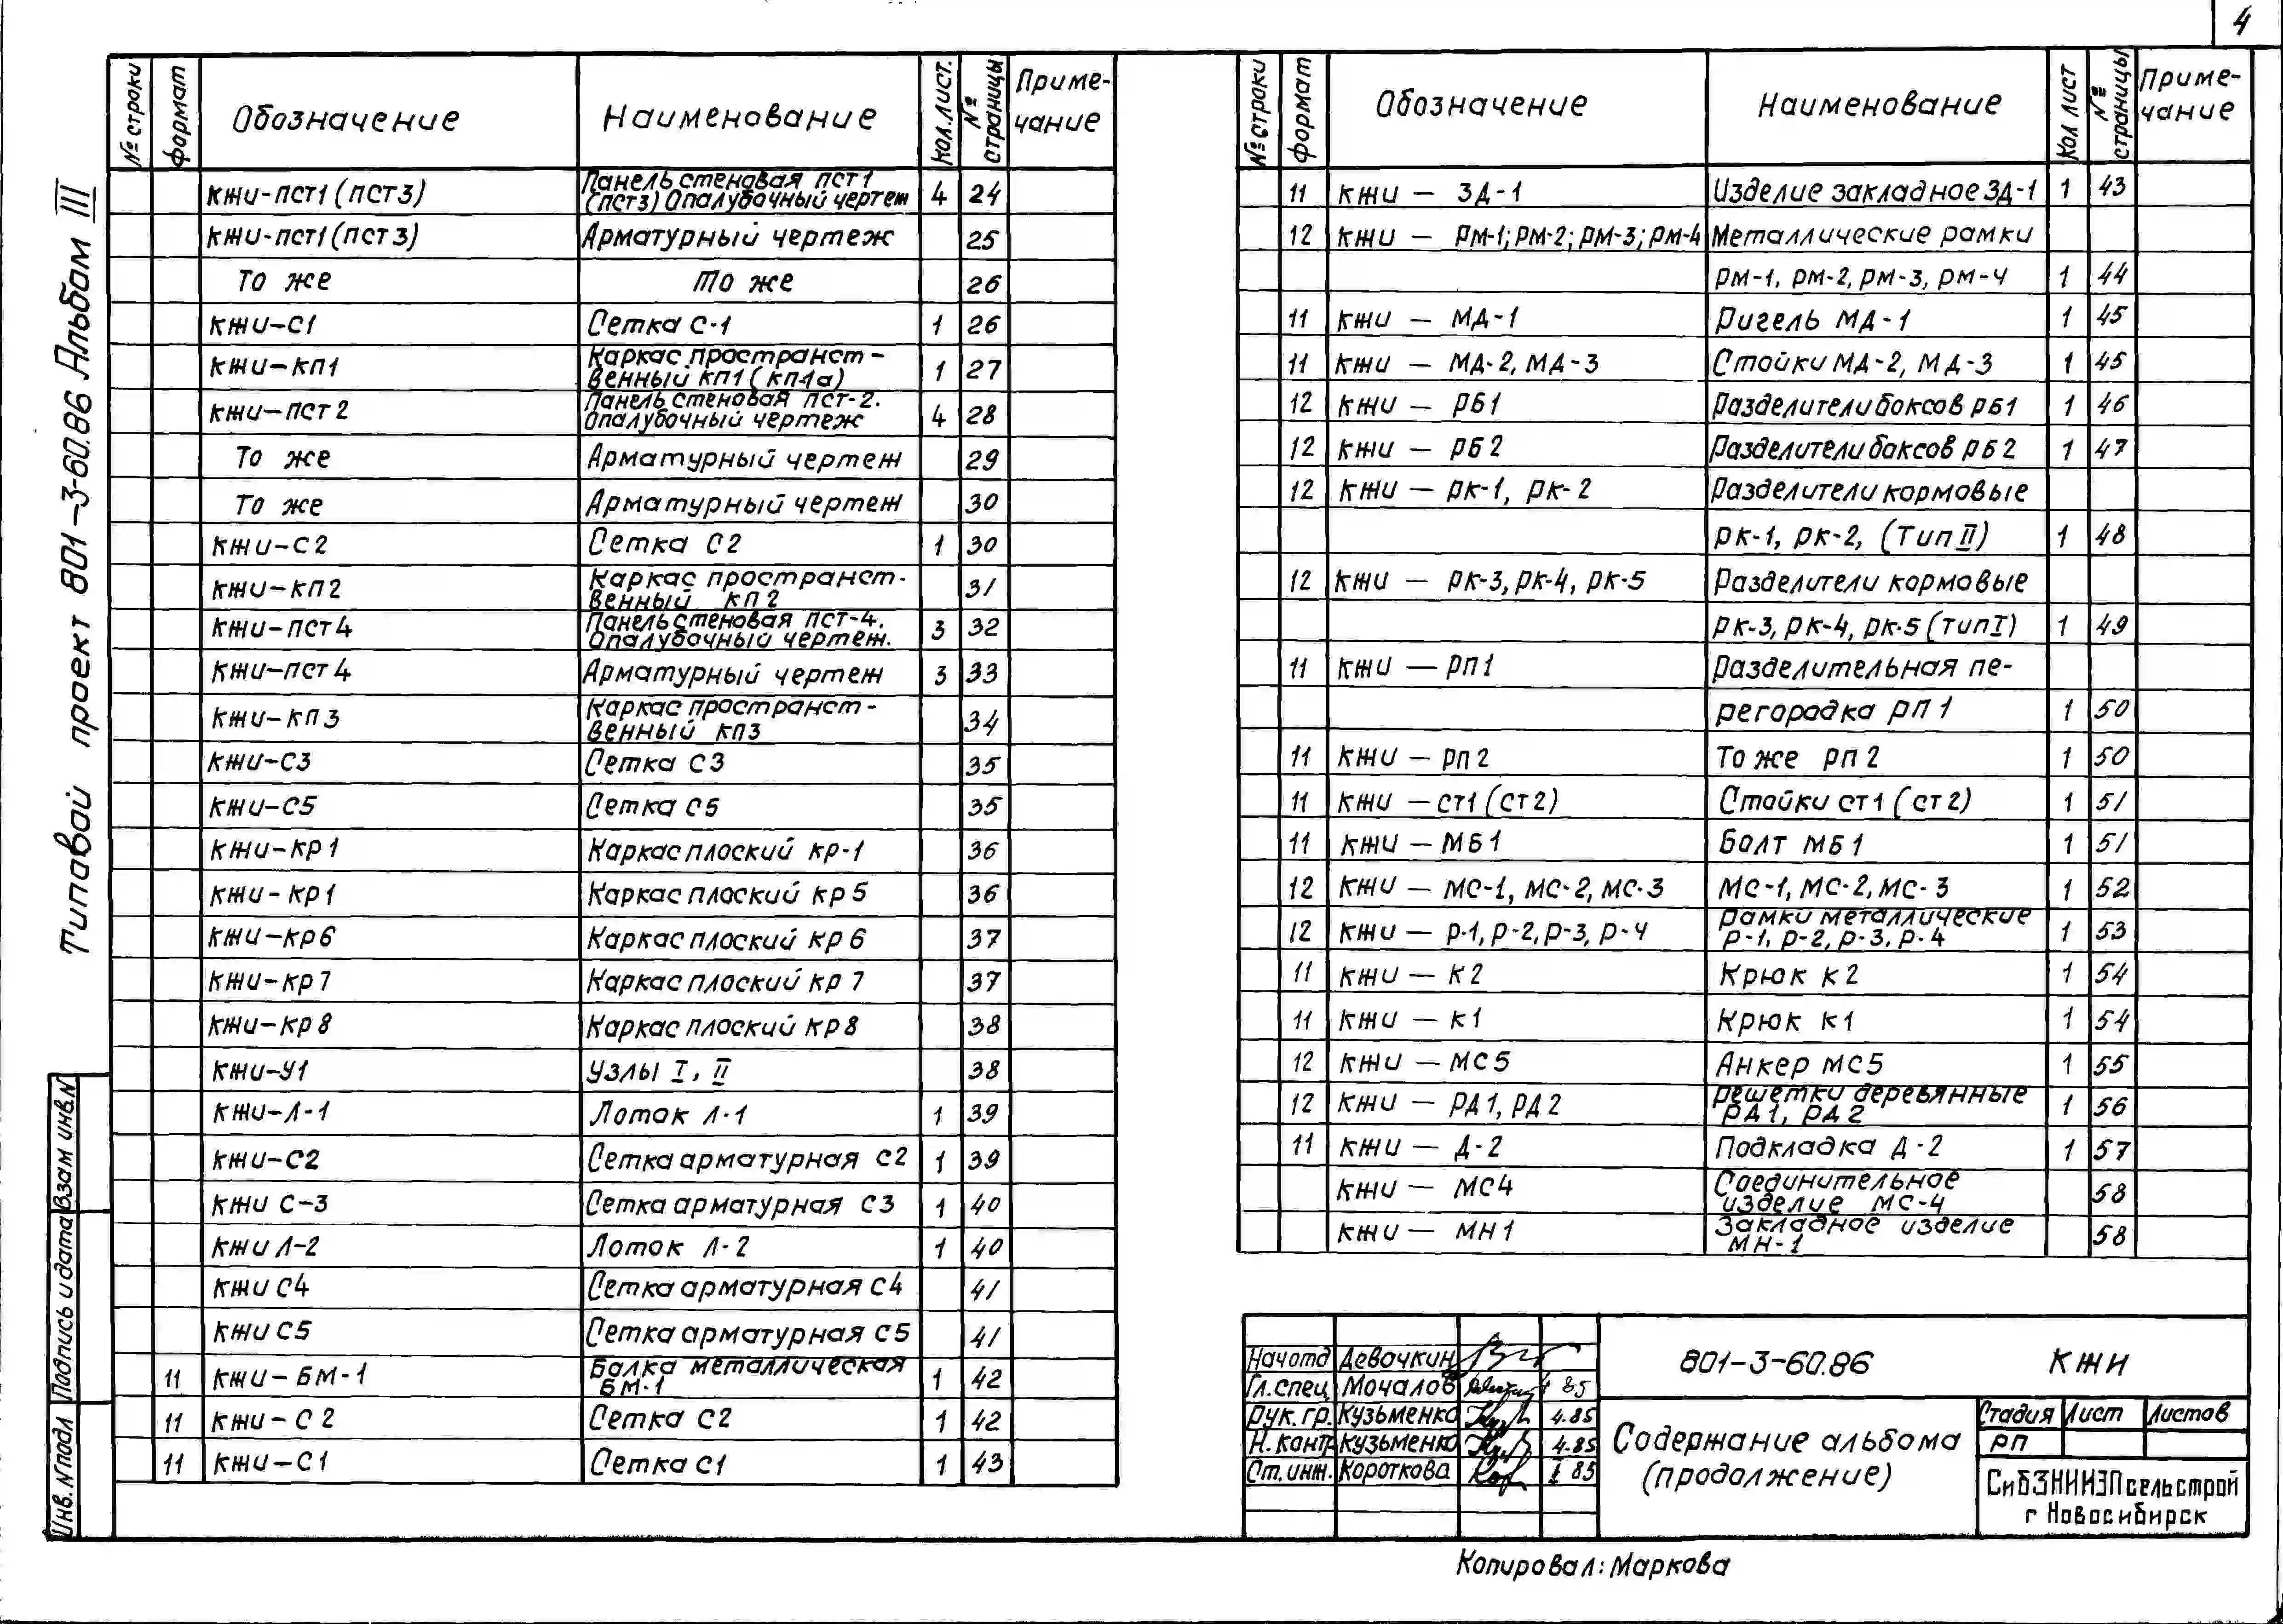 4
Типовой проект 801-3-60.86 Альбом III
№ строки формат Обозначение Наименование Кол.лист. № страницы Примечание
КЖИ-ПСТ1 (ПСТ3) Панель стеновая ПСТ1 (ПСТ3) Опалубочный чертеж 4 24
КЖИ-ПСТ1 (ПСТ3) Арматурный чертеж 25
То же То же 26
КЖИ-С1 Сетка С-1 1 26
КЖИ-КП1 Каркас пространственный КП1 (КП1а) 1 27
КЖИ-ПСТ2 Панель стеновая ПСТ-2. Опалубочный чертеж 4 28
То же Арматурный чертеж 29
То же Арматурный чертеж 30
КЖИ-С2 Сетка С2 1 30
КЖИ-КП2 Каркас пространст-венный КП2 31
КЖИ-ПСТ4 Панель стеновая ПСТ-4. Опалубочный чертеж. 3 32
КЖИ-ПСТ4 Арматурный чертеж 3 33
КЖИ-КП3 Каркас пространст-венный КП3 34
КЖИ-С3 Сетка С3 35
КЖИ-С5 Сетка С5 35
КЖИ-КР1 Каркас плоский КР-1 36
КЖИ-КР1 Каркас плоский КР5 36
КЖИ-КР6 Каркас плоский КР6 37
КЖИ-КР7 Каркас плоский КР7 37
КЖИ-КР8 Каркас плоский КР8 38
КЖИ-У1 Узлы I, II 38
КЖИ-Л-1 Лоток Л-1 1 39
КЖИ-С2 Сетка арматурная С2 1 39
КЖИ С-3 Сетка арматурная С3 1 40
КЖИ Л-2 Лоток Л-2 1 40
КЖИ С4 Сетка арматурная С4 41
КЖИ С5 Сетка арматурная С5 41
11 КЖИ-БМ-1 Балка металлическая БМ-1 1 42
11 КЖИ-С2 Сетка С2 1 42
11 КЖИ-С1 Сетка С1 1 43
№ строки формат Обозначение Наименование Кол лист № страницы Примечание
11 КЖИ — ЗД-1 Изделие закладное ЗД-1 1 43
12 КЖИ — РМ-1; РМ-2; РМ-3; РМ-4 Металлические рамки
РМ-1, РМ-2, РМ-3, РМ-4 1 44
11 КЖИ — МД-1 Ригель МД-1 1 45
11 КЖИ — МД-2, МД-3 Стойки МД-2, МД-3 1 45
12 КЖИ — РБ1 Разделители боксов РБ1 1 46
12 КЖИ — РБ2 Разделители баксов РБ2 1 47
12 КЖИ — РК-1, РК-2 Разделители кормовые
РК-1, РК-2, (Тип II) 1 48
12 КЖИ — РК-3, РК-4, РК-5 Разделители кормовые
РК-3, РК-4, РК-5 (тип I) 1 49
11 КЖИ — РП1 Разделительная пе-
регородка РП1 1 50
11 КЖИ — РП2 То же РП2 1 50
11 КЖИ — СТ1 (СТ2) Стойки СТ1 (СТ2) 1 51
11 КЖИ — МБ1 Болт МБ1 1 51
12 КЖИ — МС-1, МС-2, МС-3 МС-1, МС-2, МС-3 1 52
12 КЖИ — Р-1, Р-2, Р-3, Р-4 Рамки металлические Р-1, Р-2, Р-3, Р-4 1 53
11 КЖИ — К2 Крюк К2 1 54
11 КЖИ — К1 Крюк К1 1 54
12 КЖИ — МС5 Анкер МС5 1 55
12 КЖИ — РД1, РД2 Решетки деревянные РД1, РД2 1 56
11 КЖИ — Д-2 Подкладка Д-2 1 57
КЖИ — МС4 Соединительное изделие МС-4 58
КЖИ — МН1 Закладное изделие МН-1 58
Взам инв.N
Подпись и дата
Инв.N подл
Нач отд Девочкин
Гл.спец Мочалов 85
Рук.гр. Кузьменко 4.85
Н.контр Кузьменко 4.85
Ст.инж. Короткова 85
801-3-60.86 КЖИ
Содержание альбома (продолжение)
Стадия Лист Листов
РП
СибЗНИИЭПсельстрой
г Новосибирск
Копировал: Маркова